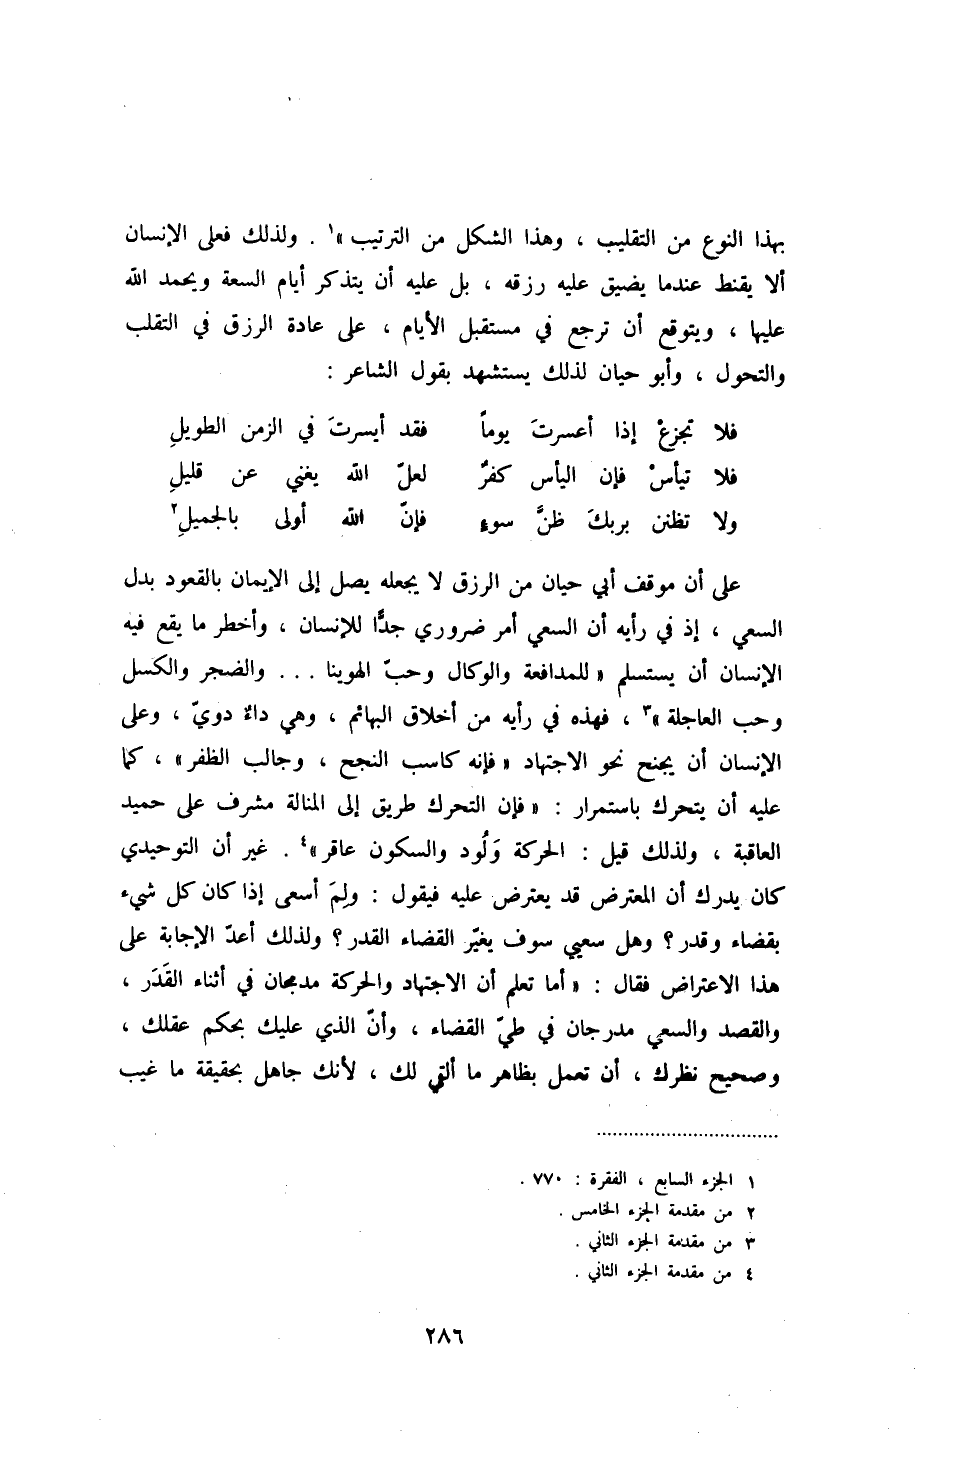 بهذا النوع من التقليب ، وهذا الشكل من الترتيب »١ . ولذلك فعلى الإنسان
ألا يقنط عندما يضيق عليه رزقه ، بل عليه أن يتذكر أيام السعة ويحمد الله
عليها ، ويتوقع أن ترجع في مستقبل الأيام ، على عادة الرزق في التقلب
والتحول ، وأبو حيان لذلك يستشهد بقول الشاعر :
فلا تجزعْ إذا أعسرتَ يوماً فقد أيسرتَ في الزمن الطويلِ
فلا تيأسْ فإن اليأس كفرٌ لعلّ الله يغني عن قليلِ
ولا تظنن بربكَ ظنَّ سوءٍ فإنّ الله أولى بالجميلِ٢
على أن موقف أبي حيان من الرزق لا يجعله يصل إلى الإيمان بالقعود بدل
السعي ، إذ في رأيه أن السعي أمر ضروري جدًّا للإنسان ، وأخطر ما يقع فيه
الإنسان أن يستسلم « للمدافعة والوكال وحبّ الهوينا ... والضجر والكسل
وحب العاجلة »٣ ، فهذه في رأيه من أخلاق البهائم ، وهي داءٌ دويّ ، وعلى
الإنسان أن يجنح نحو الاجتهاد « فإنه كاسب النجح ، وجالب الظفر » ، كما
عليه أن يتحرك باستمرار : « فإن التحرك طريق إلى المنالة مشرف على حميد
العاقبة ، ولذلك قيل : الحركة وَلُود والسكون عاقر »٤ . غير أن التوحيدي
كان يدرك أن المعترض قد يعترض عليه فيقول : ولِمَ أسعى إذا كان كل شيء
بقضاء وقدر ؟ وهل سعيي سوف يغيّر القضاء القدر ؟ ولذلك أعدّ الإجابة على
هذا الاعتراض فقال : « أما تعلم أن الاجتهاد والحركة مدمجان في أثناء القَدَر ،
والقصد والسعي مدرجان في طيّ القضاء ، وأنّ الذي عليك بحكم عقلك ،
وصحيح نظرك ، أن تعمل بظاهر ما ألقي لك ، لأنك جاهل بحقيقة ما غيب
١ الجزء السابع ، الفقرة : ٧٧٠ .
٢ من مقدمة الجزء الخامس .
٣ من مقدمة الجزء الثاني .
٤ من مقدمة الجزء الثاني .
٢٨٦